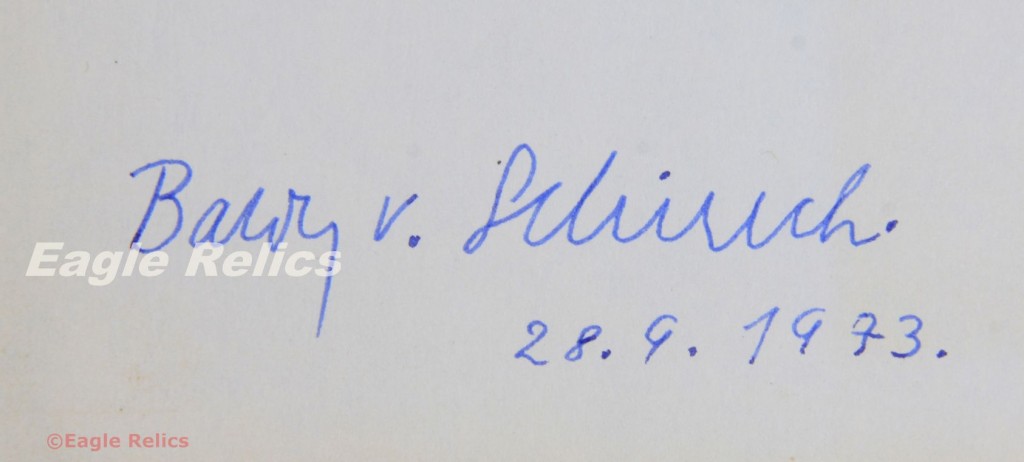 Baldur v. Schirach.
Eagle Relics
28. 9. 1973.
©Eagle Relics